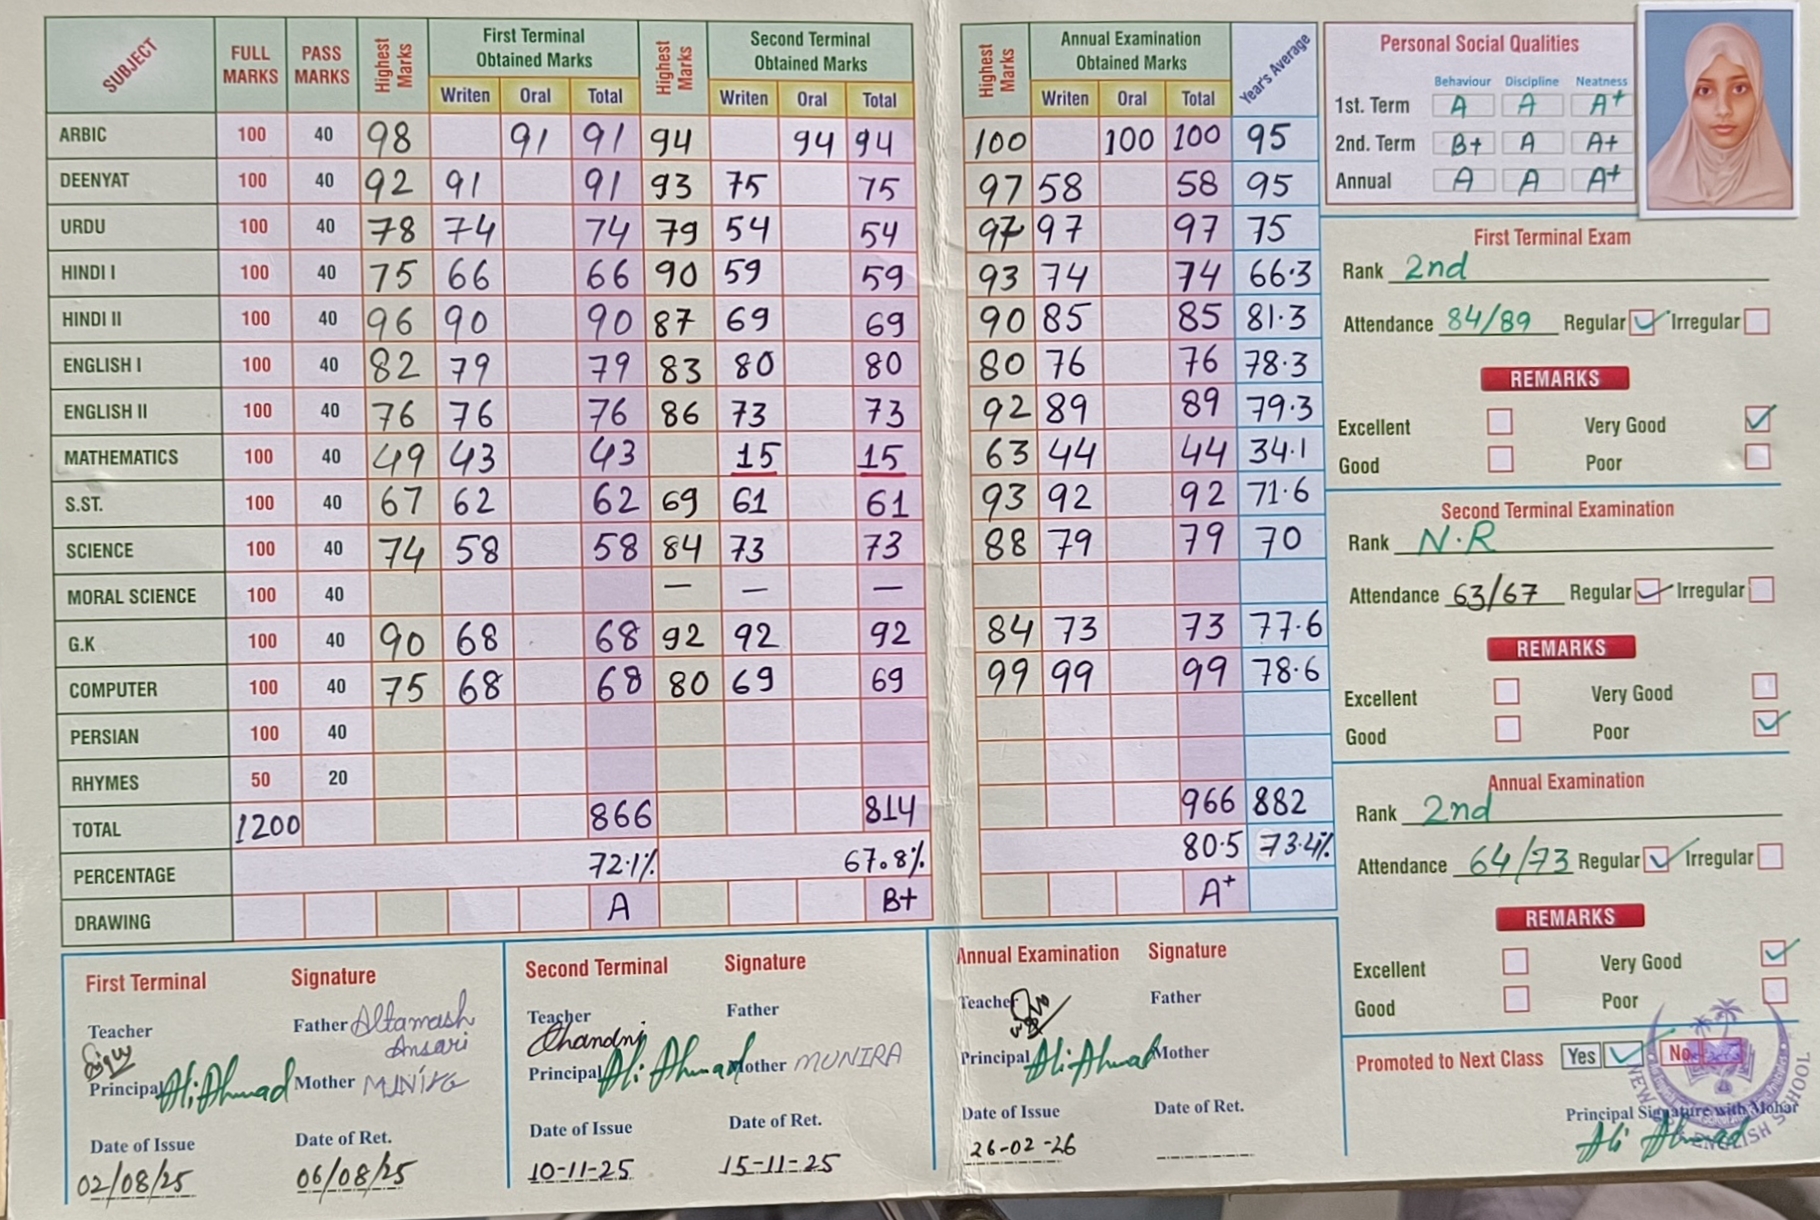 SUBJECT FULL MARKS PASS MARKS Highest Marks First Terminal Obtained Marks Writen Oral Total Highest Marks Second Terminal Obtained Marks Writen Oral Total Highest Marks Annual Examination Obtained Marks Writen Oral Total Year's Average
ARBIC 100 40 98 91 91 94 94 94 100 100 100 95
DEENYAT 100 40 92 91 91 93 75 75 97 58 58 95
URDU 100 40 78 74 74 79 54 54 97 97 97 75
HINDI I 100 40 75 66 66 90 59 59 93 74 74 66.3
HINDI II 100 40 96 90 90 87 69 69 90 85 85 81.3
ENGLISH I 100 40 82 79 79 83 80 80 80 76 76 78.3
ENGLISH II 100 40 76 76 76 86 73 73 92 89 89 79.3
MATHEMATICS 100 40 49 43 43 15 15 63 44 44 34.1
S.ST. 100 40 67 62 62 69 61 61 93 92 92 71.6
SCIENCE 100 40 74 58 58 84 73 73 88 79 79 70
MORAL SCIENCE 100 40 — — —
G.K 100 40 90 68 68 92 92 92 84 73 73 77.6
COMPUTER 100 40 75 68 68 80 69 69 99 99 99 78.6
PERSIAN 100 40
RHYMES 50 20
TOTAL 1200 866 814 966 882
PERCENTAGE 72.1% 67.8% 80.5 73.4%
DRAWING A B+ A+
Personal Social Qualities
Behaviour Discipline Neatness
1st. Term A A A+
2nd. Term B+ A A+
Annual A A A+
First Terminal Exam
Rank 2nd
Attendance 84/89 Regular ✓ Irregular
REMARKS
Excellent Very Good ✓
Good Poor
Second Terminal Examination
Rank N.R
Attendance 63/67 Regular ✓ Irregular
REMARKS
Excellent Very Good
Good Poor ✓
Annual Examination
Rank 2nd
Attendance 64/73 Regular ✓ Irregular
REMARKS
Excellent Very Good ✓
Good Poor
Promoted to Next Class Yes ✓ No
Principal Signature with Mohar
Ali Ahmad
NEW ENGLISH SCHOOL
First Terminal Signature
Teacher Father Altamash Ansari
Principal Ali Ahmad Mother
Date of Issue Date of Ret.
02/08/25 06/08/25
Second Terminal Signature
Teacher Chandni Father
Principal Ali Ahmad Mother MUNIRA
Date of Issue Date of Ret.
10-11-25 15-11-25
Annual Examination Signature
Teacher Father
Principal Ali Ahmad Mother
Date of Issue Date of Ret.
26-02-26